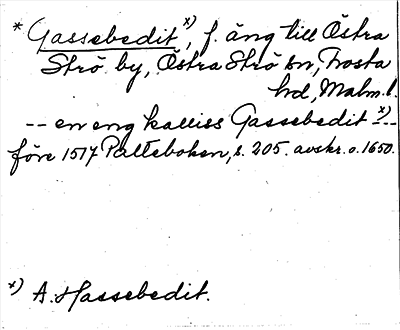 * Gassebedit x), f. äng till Östra
Strö by, Östra Strö sn, Frosta
hd, Malm. l.
-- en eng kalliss Gassebedit x) --
före 1517 Palteboken, s. 205. avskr. o. 1650.
x) A. Hassebedit.